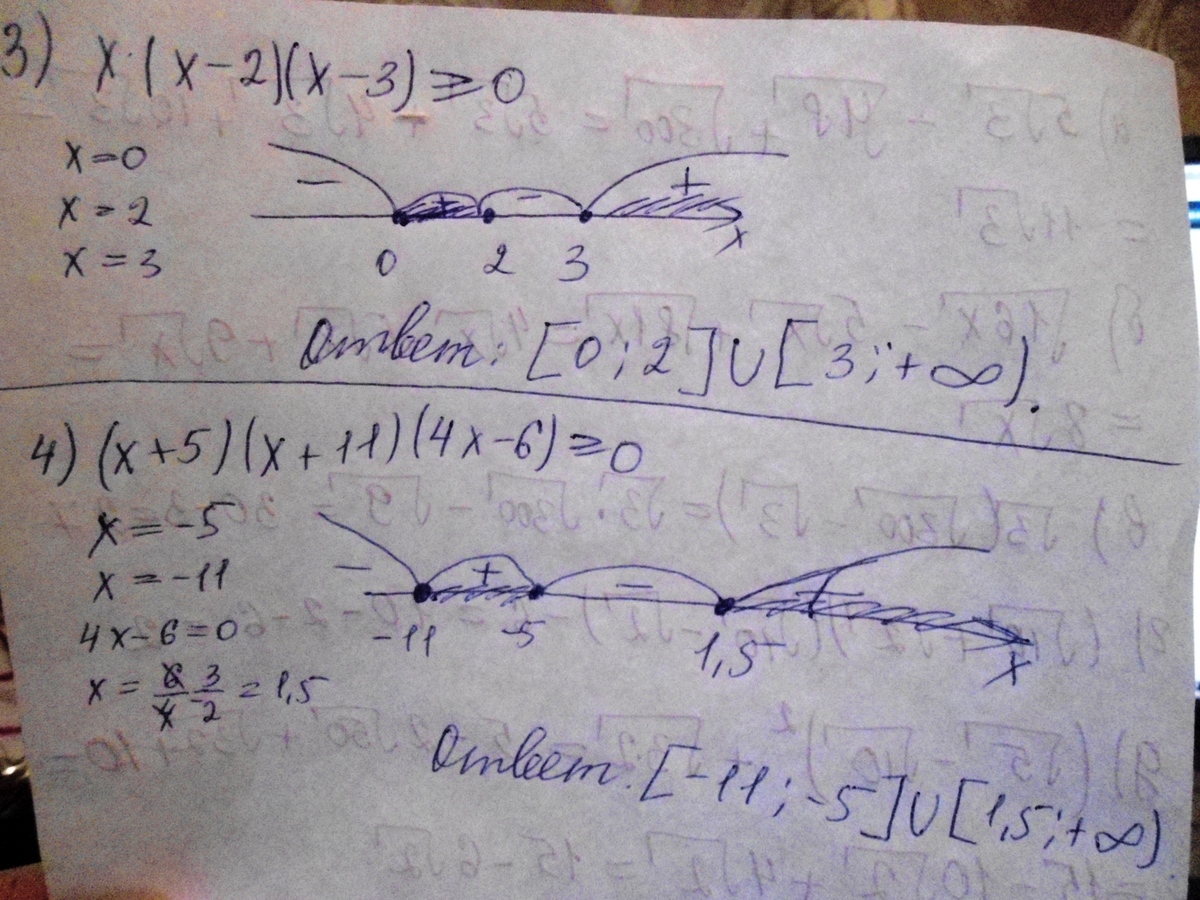 3) x·(x-2)(x-3)≥0
x=0
x=2
x=3
- + - +
0 2 3 x
Ответ: [0;2]∪[3;+∞).
4) (x+5)(x+11)(4x-6)≥0
x=-5
x=-11
4x-6=0
x=6/4 3/2=1,5
- + - +
-11 -5 1,5 x
Ответ: [-11;-5]∪[1,5;+∞)